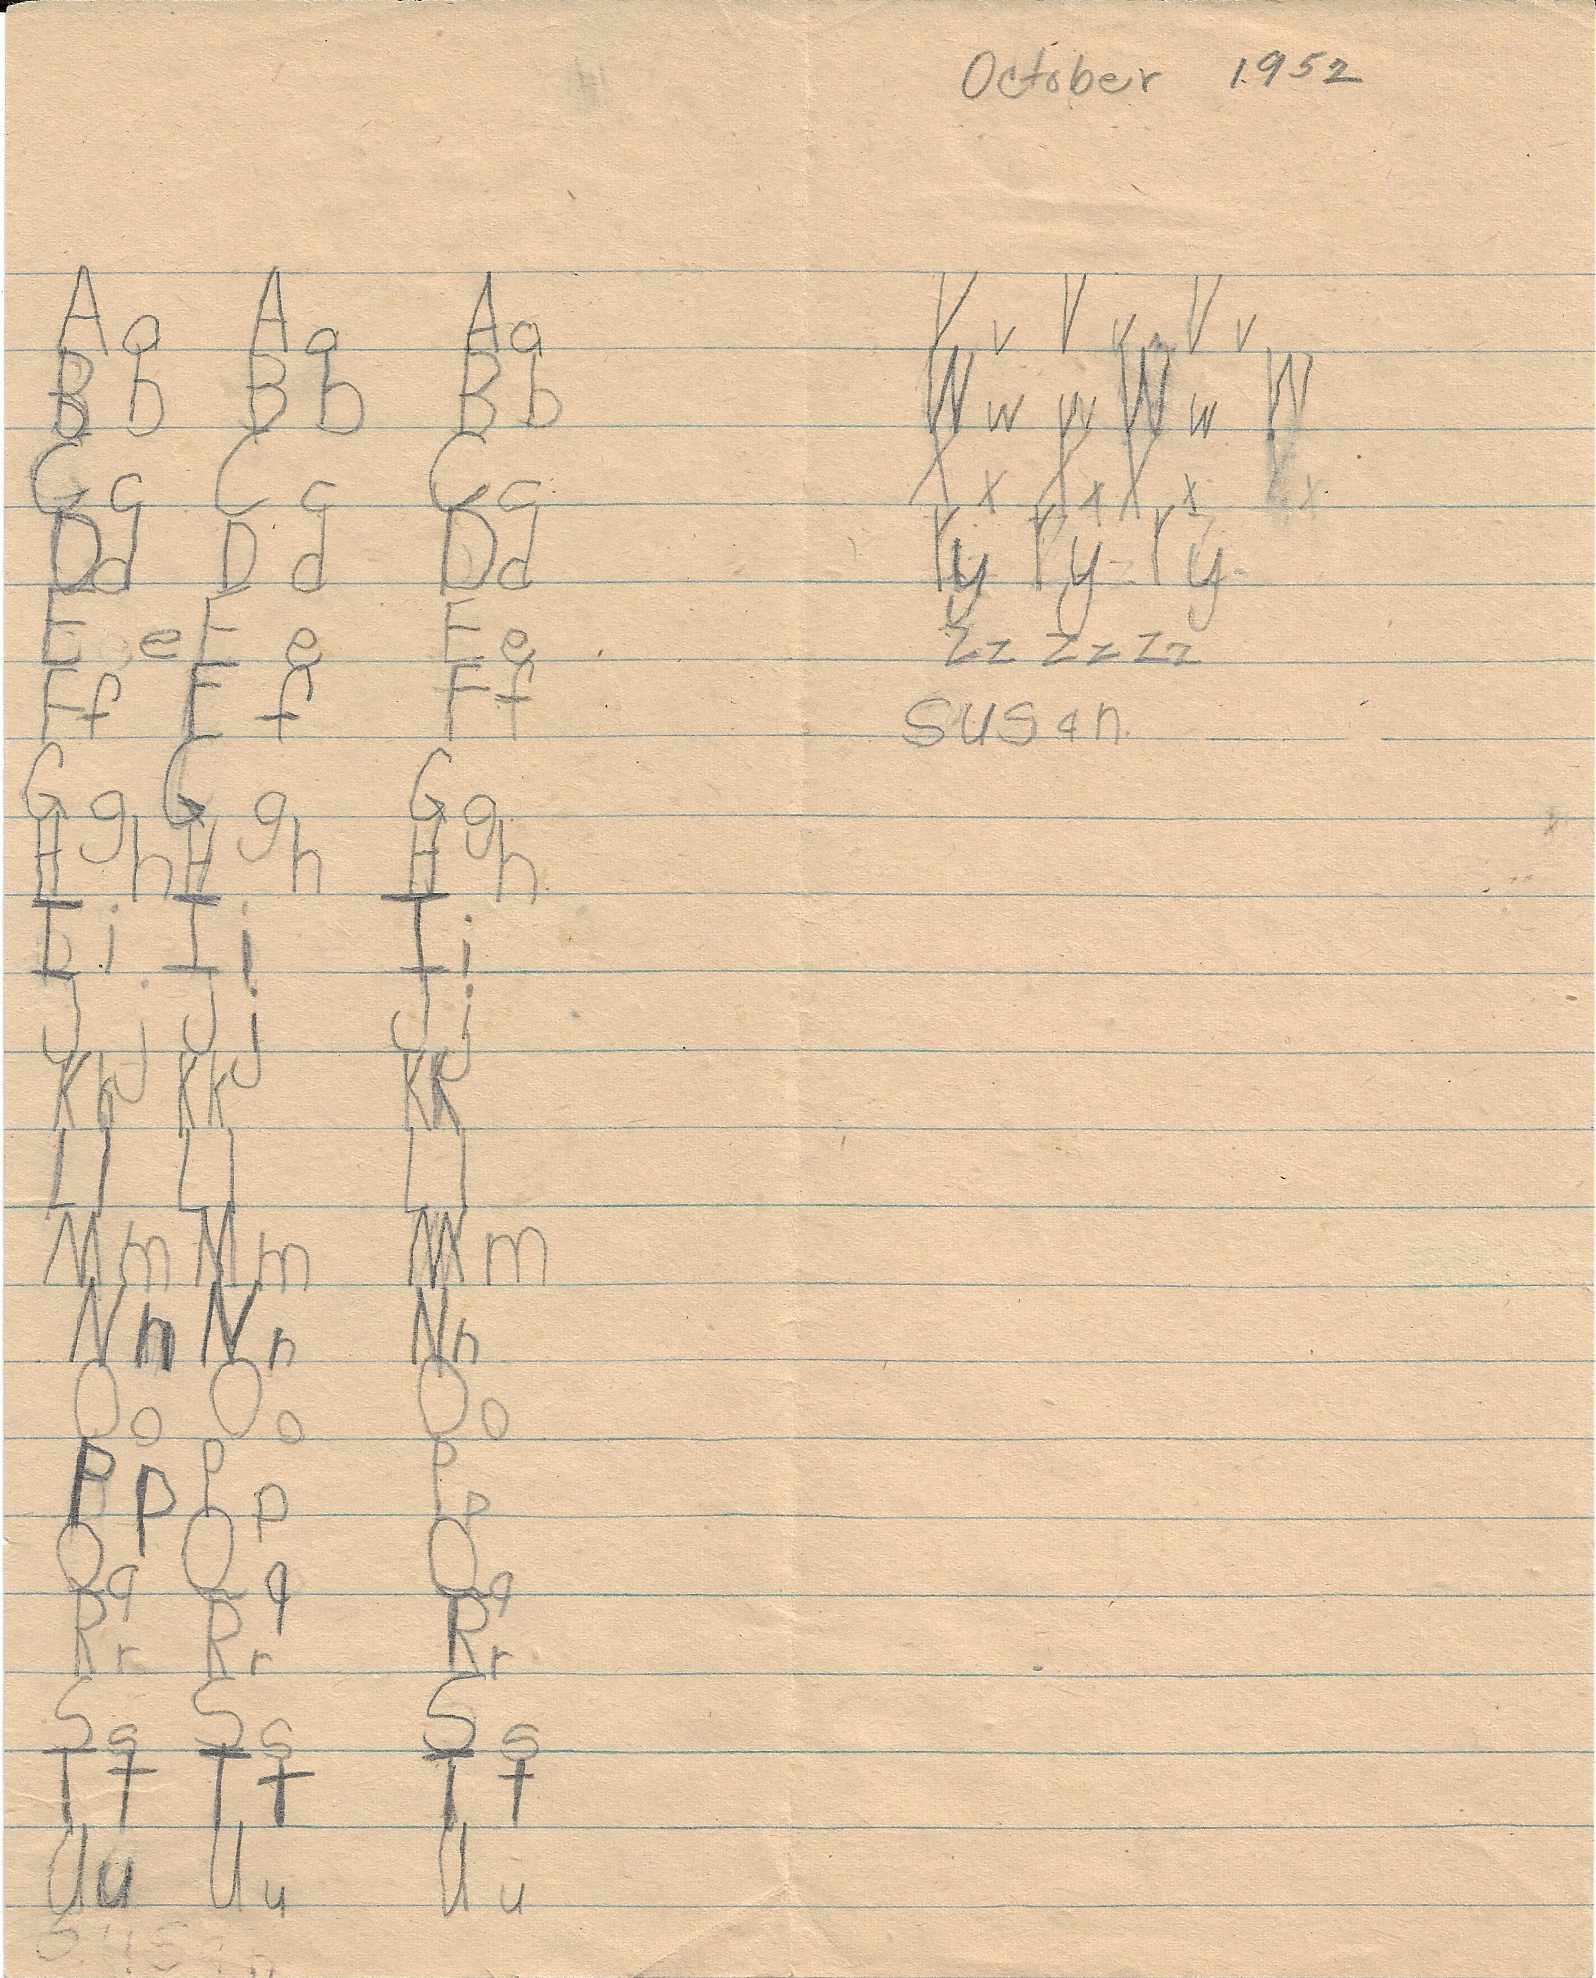 October 1952
Aa Aa Aa
Bb Bb Bb
Cc Cc Cc
Dd Dd Dd
Ee Ee Ee
Ff Ef Ff
Gg Gg Gg
Hh Hh Hh
Ii Ii Ii
Jj Jj Jj
Kk Kk KK
Ll Ll Ll
Mm Mm Mm
Nn Nn Nn
Oo Oo Oo
Pp Pp Pp
Qq Qq Qq
Rr Rr Rr
Ss Ss Ss
Tt Tt Tt
Uu Uu Uu
Susan
Vv Vv Vv
Ww w Ww W
Xx Xx Xx x
Yy Yy Yy
Zz Zz Zz
Susan